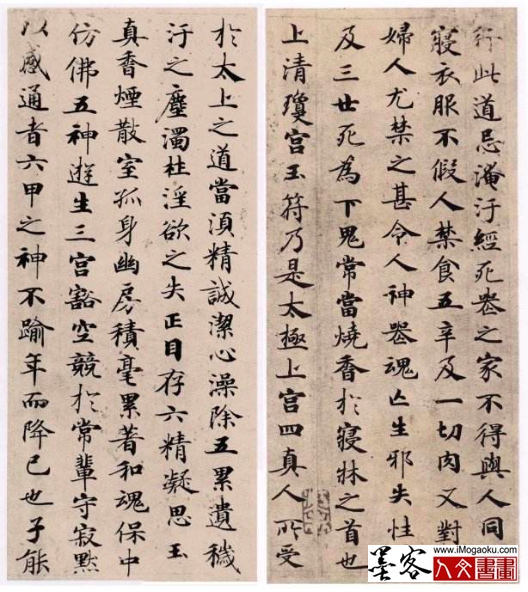 行此道忌淹汙經死喪之家不得與人同
寢衣服不假人禁食五辛及一切肉又對
婦人尤禁之甚令人神喪魂亡生邪失性
及三世死為下鬼常當燒香於寢牀之首也
上清瓊宮玉符乃是太極上宮四真人所受
於太上之道當須精誠潔心澡除五累遺穢
汙之塵濁杜淫欲之失正目存六精凝思玉
真香煙散室孤身幽房積毫累著和魂保中
仿佛五神遊生三宮豁空競於常輩守寂默
以感通者六甲之神不踰年而降已也子能
墨客 www.iMogaoku.com
人文書畫